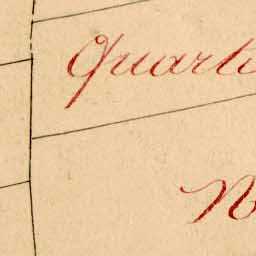 Quart
N